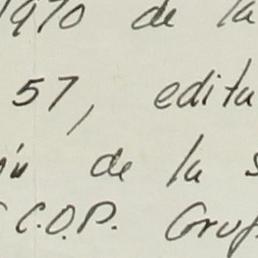 1970 de la
57, edita
ón de la s
C.O.P. Grup